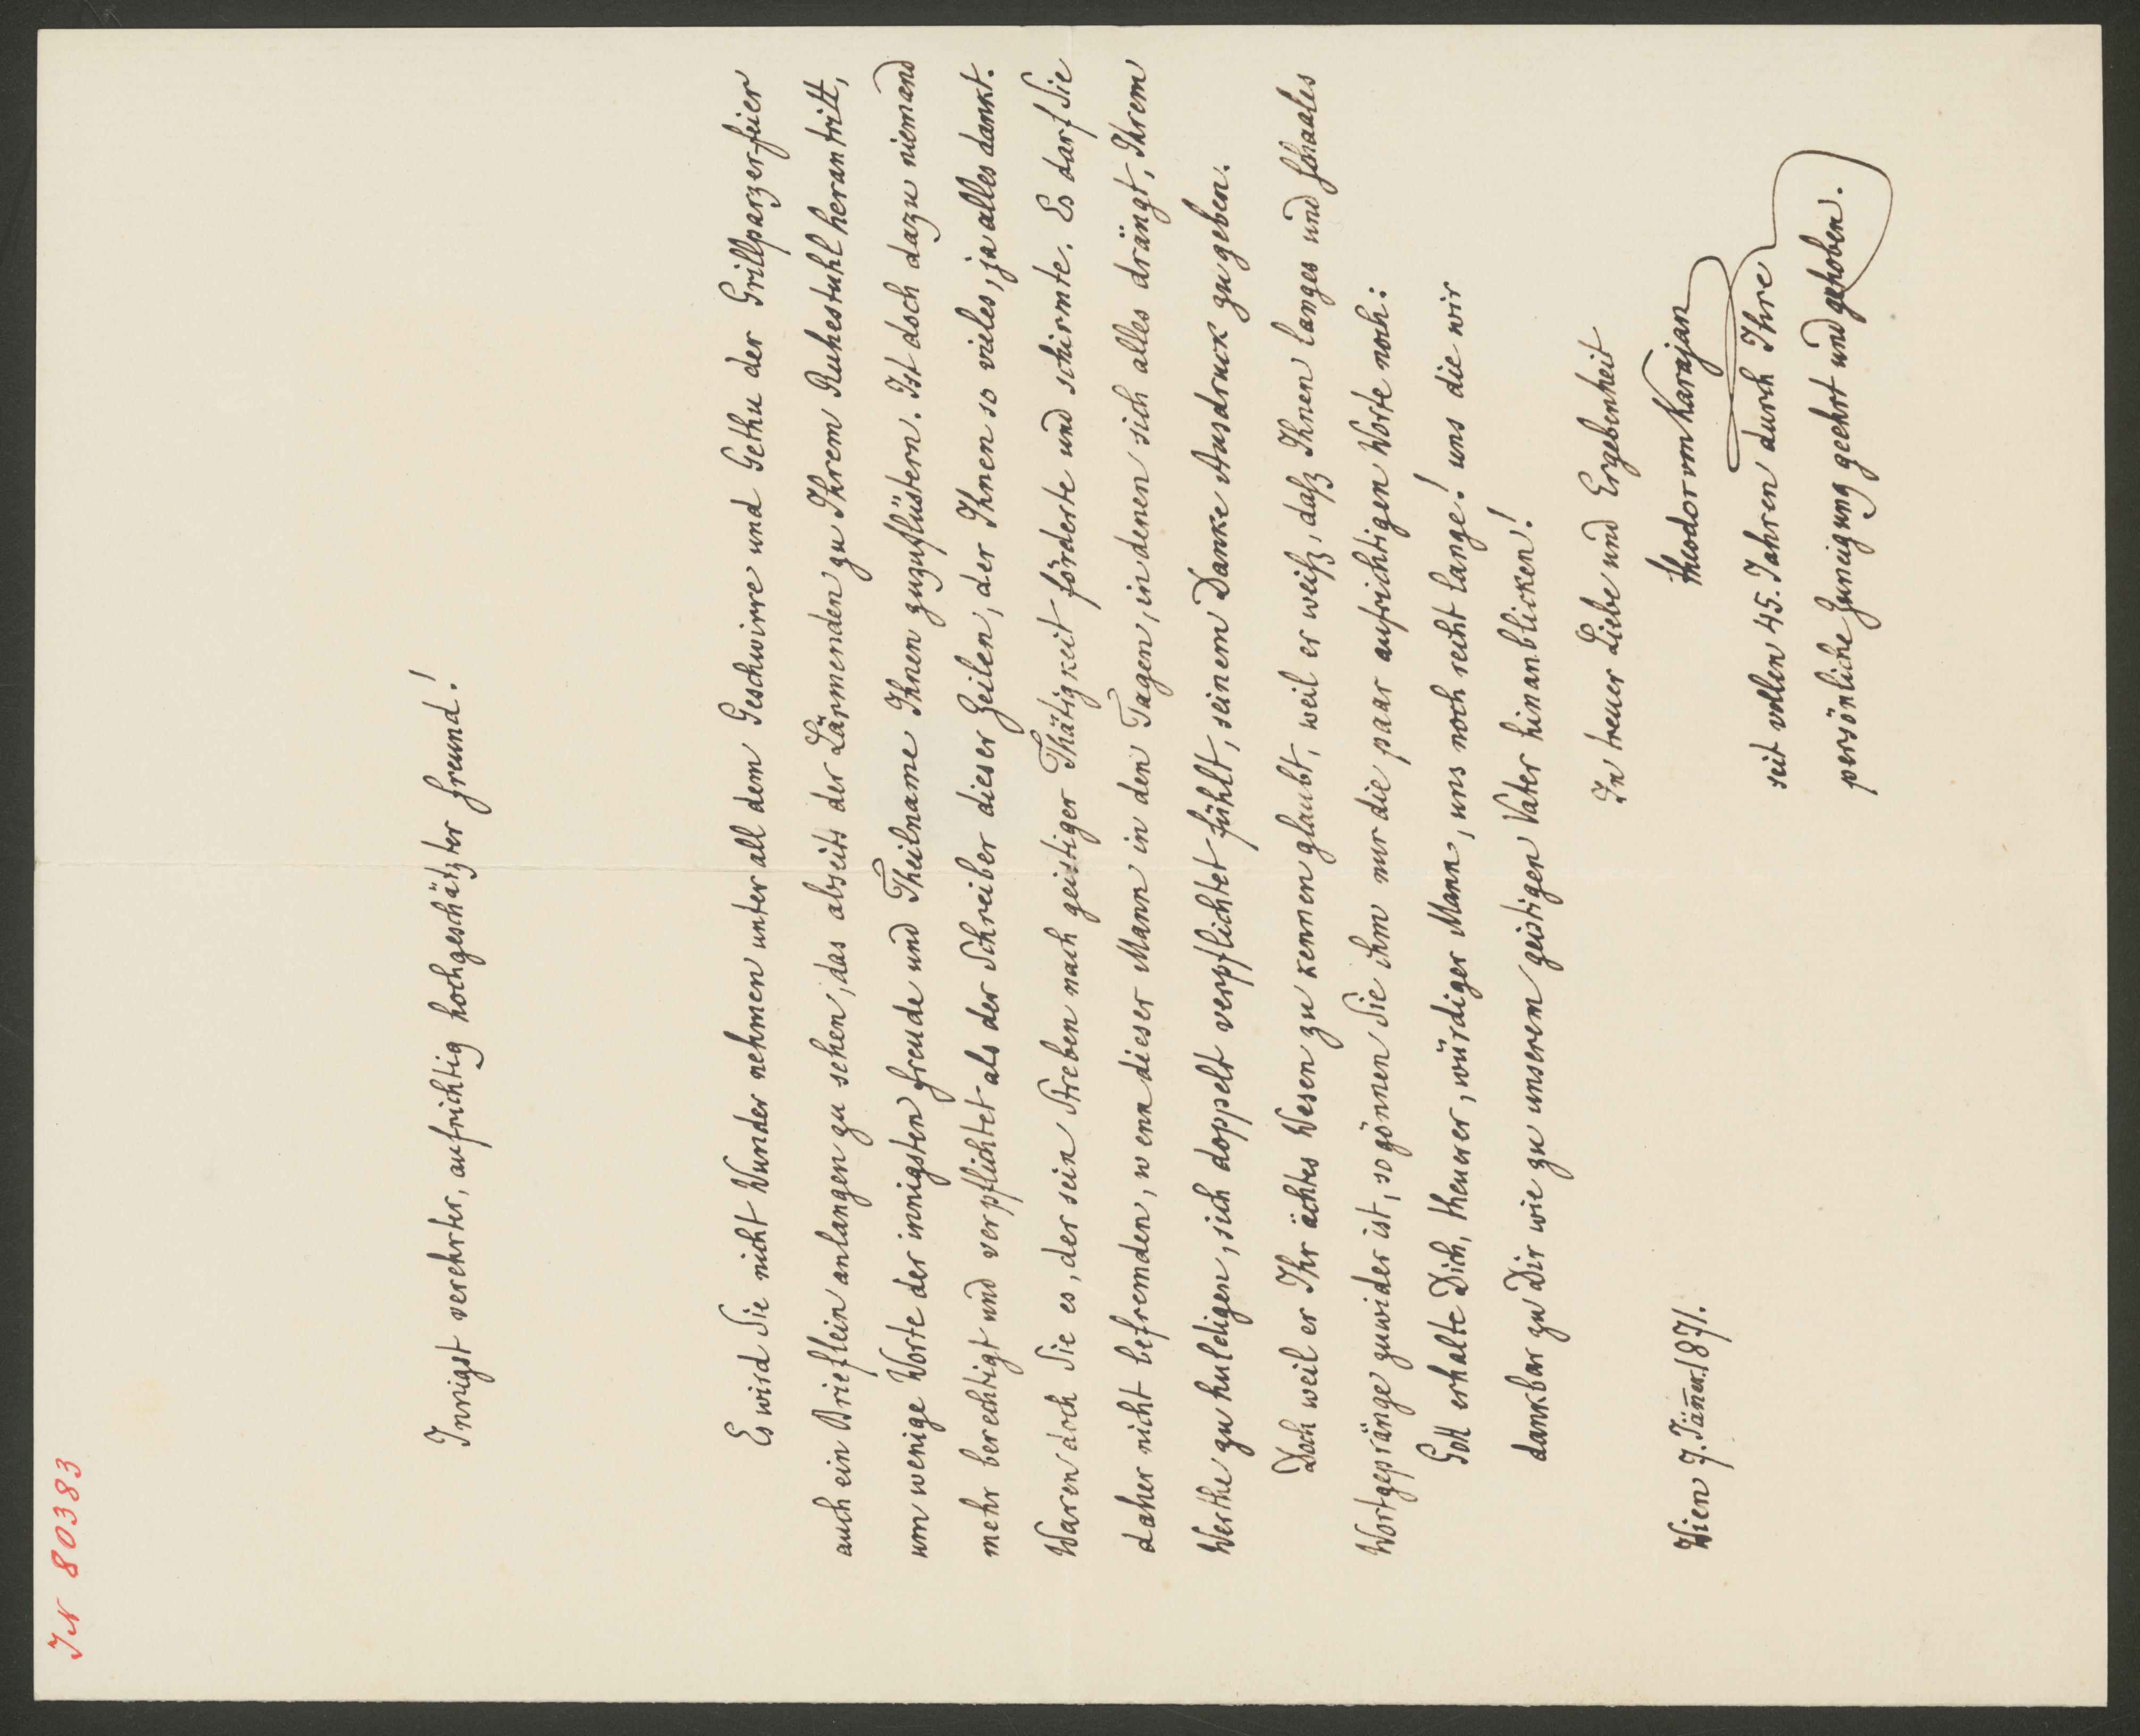 IN 80383
Innigst verehrter, aufrichtig hochgeschätzter Freund!
Es wird Sie nicht Wunder nehmen unter all dem Geschwirre und Gethu der Grillparzerfeier
auch ein Brieflein anlangen zu sehen, das abseits der Lärmenden zu Ihrem Ruhestuhl herantritt,
um wenige Worte der innigsten Freude und Theilname Ihnen zuzuflüstern. Ist doch dazu niemand
mehr berechtigt und verpflichtet als der Schreiber dieser Zeilen, der Ihnen so vieles, ja alles dankt.
Waren doch Sie es, der sein Streben nach geistiger Thätigkeit förderte und schirmte. Es darf Sie
daher nicht befremden, wenn dieser Mann in den Tagen, in denen sich alles drängt, Ihrem
Werthe zu huldigen, sich doppelt verpflichtet fühlt, seinem Danke Ausdruck zu geben.
Doch weil er Ihr ächtes Wesen zu kennen glaubt, weil er weiß, daß Ihnen langes und schaales
Wortgepränge zuwider ist, so gönnen Sie ihm nur die paar aufrichtigen Worte noch:
Gott erhalte Dich, theuerer, würdiger Mann, uns noch recht lange! uns die wir
dankbar zu Dir wie zu unserem geistigen Vater hinanblicken!
In treuer Liebe und Ergebenheit
Theodor von Karajan
Wien 7. Jäner. 1871.
seit vollen 45. Jahren durch Ihre
persönliche Zuneigung geehrt und gehoben.